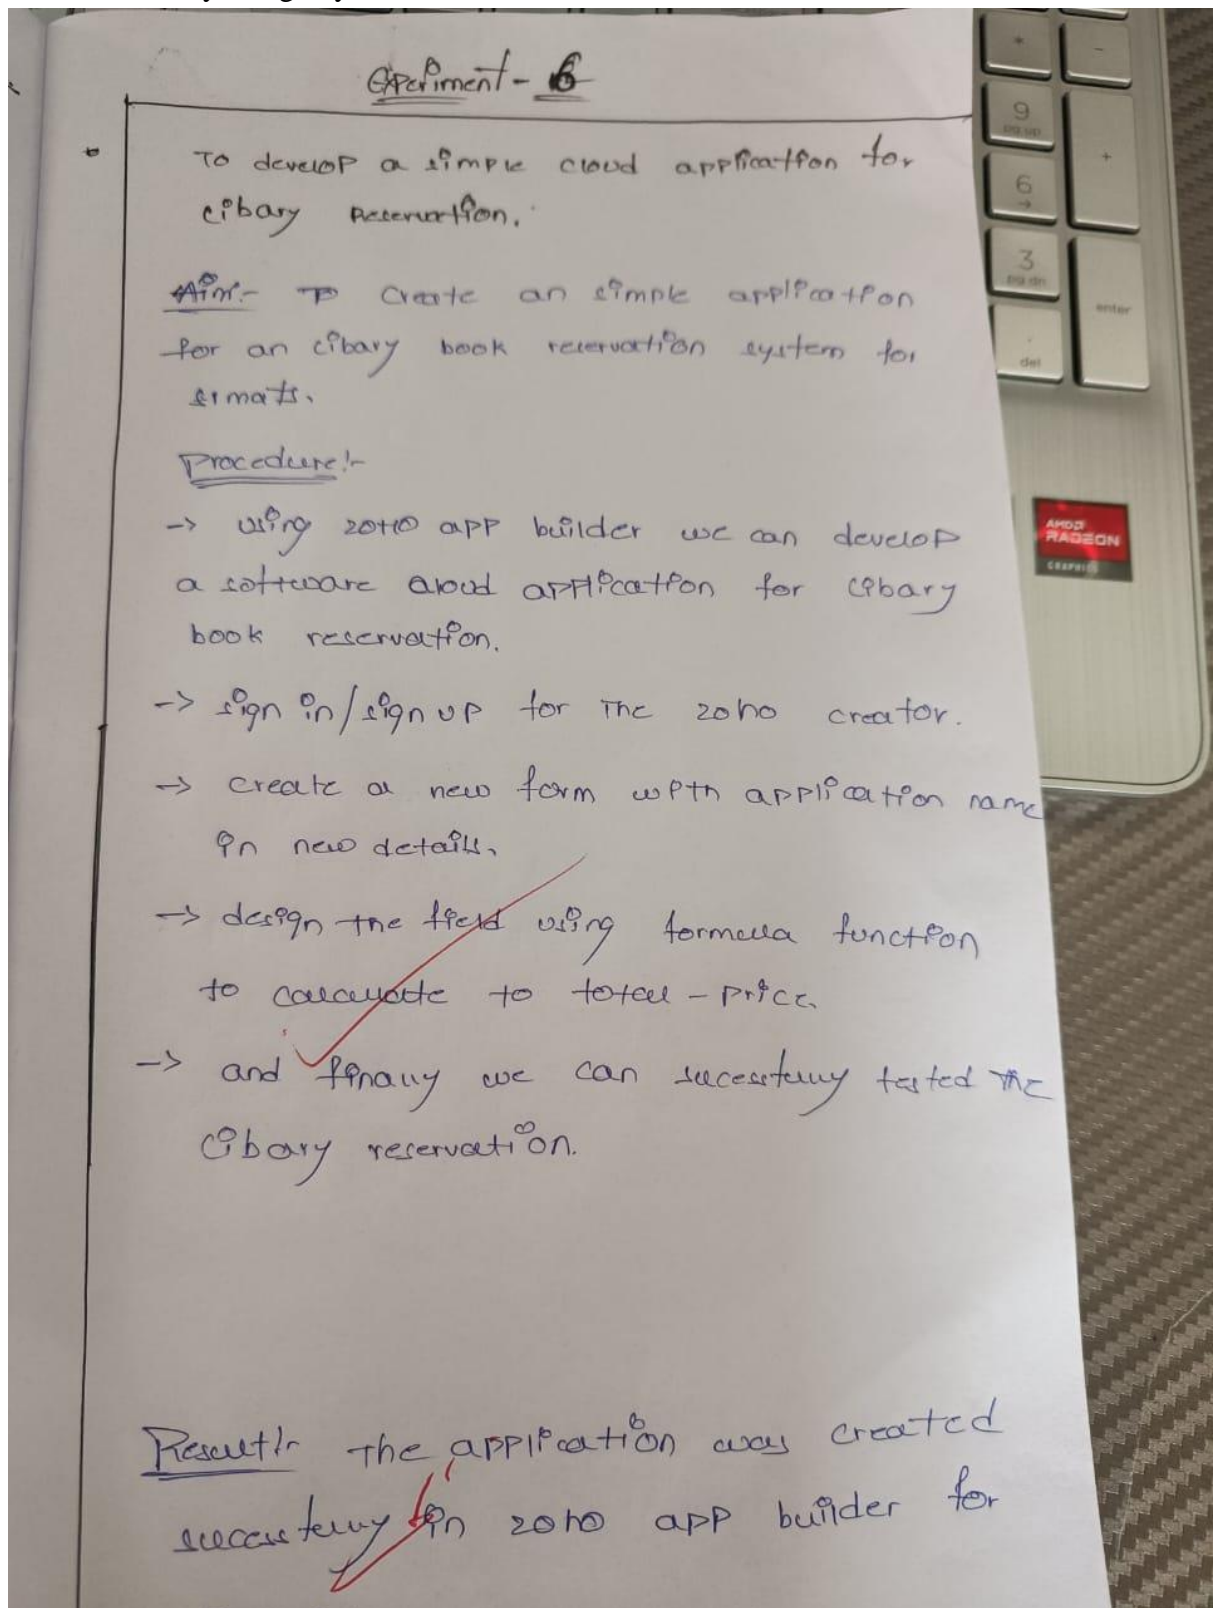 Experiment - 6
To develop a simple cloud application for
cibary Reservation.
Aim:- To create an simple application
for an cibary book reservation system for
simats.
Procedure:-
-> using zoho app builder we can develop
a software cloud application for cibary
book reservation.
-> sign in/sign up for the zoho creator.
-> create a new form with application name
in new details.
-> design the field using formula function
to calculate to total - price.
-> and finally we can sucessfully tested the
cibary reservation.
Result:- The application was created
successfully in zoho app builder for
*
-
9
pg up
+
6
→
3
pg dn
enter
.
del
AMD
RADEON
GRAPHICS